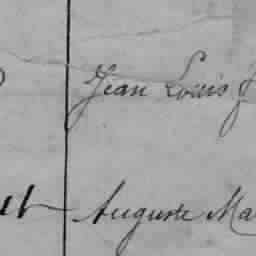 Jean Louis
Auguste Ma